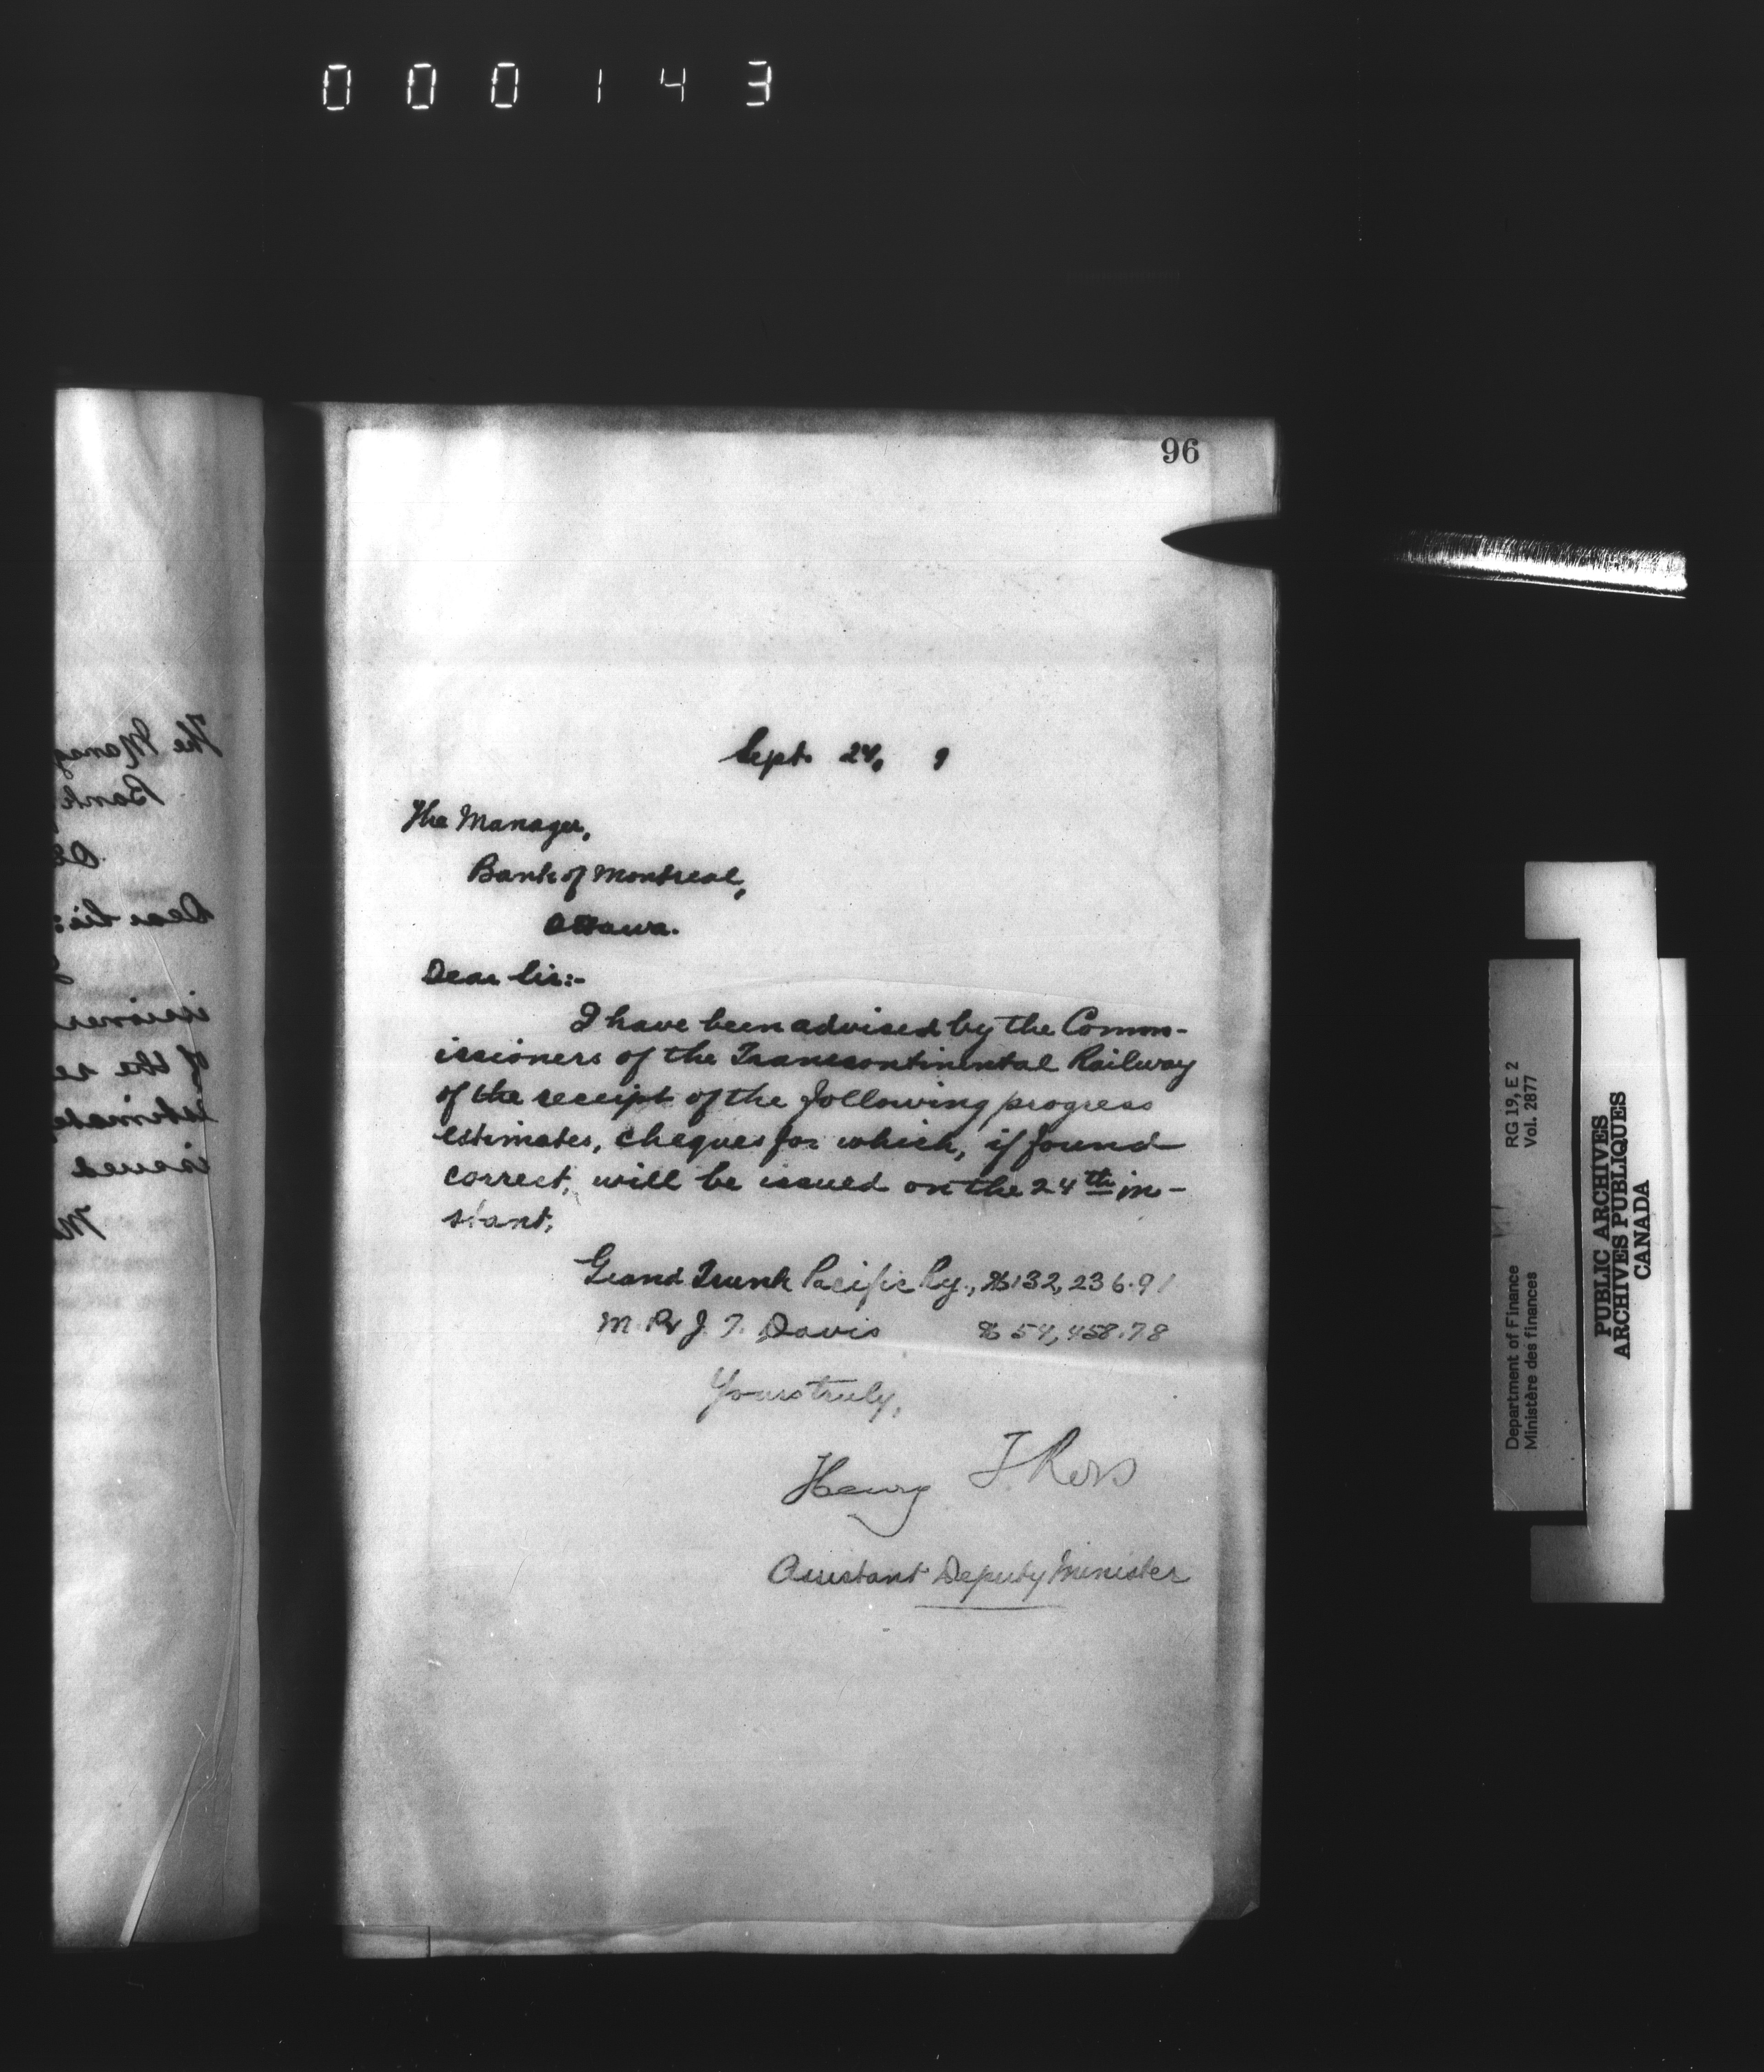 000143
96
Sept. 24, 9
The Manager,
Bank of Montreal,
Ottawa.
Dear Sir:-
I have been advised by the Comm-
issioners of the Transcontinental Railway
of the receipt of the following progress
estimates, cheques for which, if found
correct, will be issued on the 24th in-
stant.
Grand Trunk Pacific Ry., $132,236.91
M. P. & J. T. Davis $54,458.78
Yours truly,
Henry T. Ross
Assistant Deputy Minister
The Manag
Bank
Dear Sir:
issioners
of the re
estimate
issued
M
Department of Finance RG 19, E 2
Ministère des finances Vol. 2877
PUBLIC ARCHIVES
ARCHIVES PUBLIQUES
CANADA